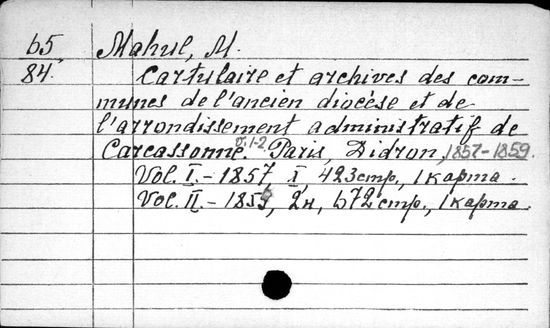 65, Mahul, M.
84. Cartulaire et archives des com-
munes de l'ancien diocèse et de
l'arrondissement administratif de
Carcassonne. v. 1-2. Paris, Didron, 1857-1859.
Vol. I. - 1857 I, 423 стр., 1 карта.
Vol. II. - 1859, 2н, 672 стр., 1 карта.